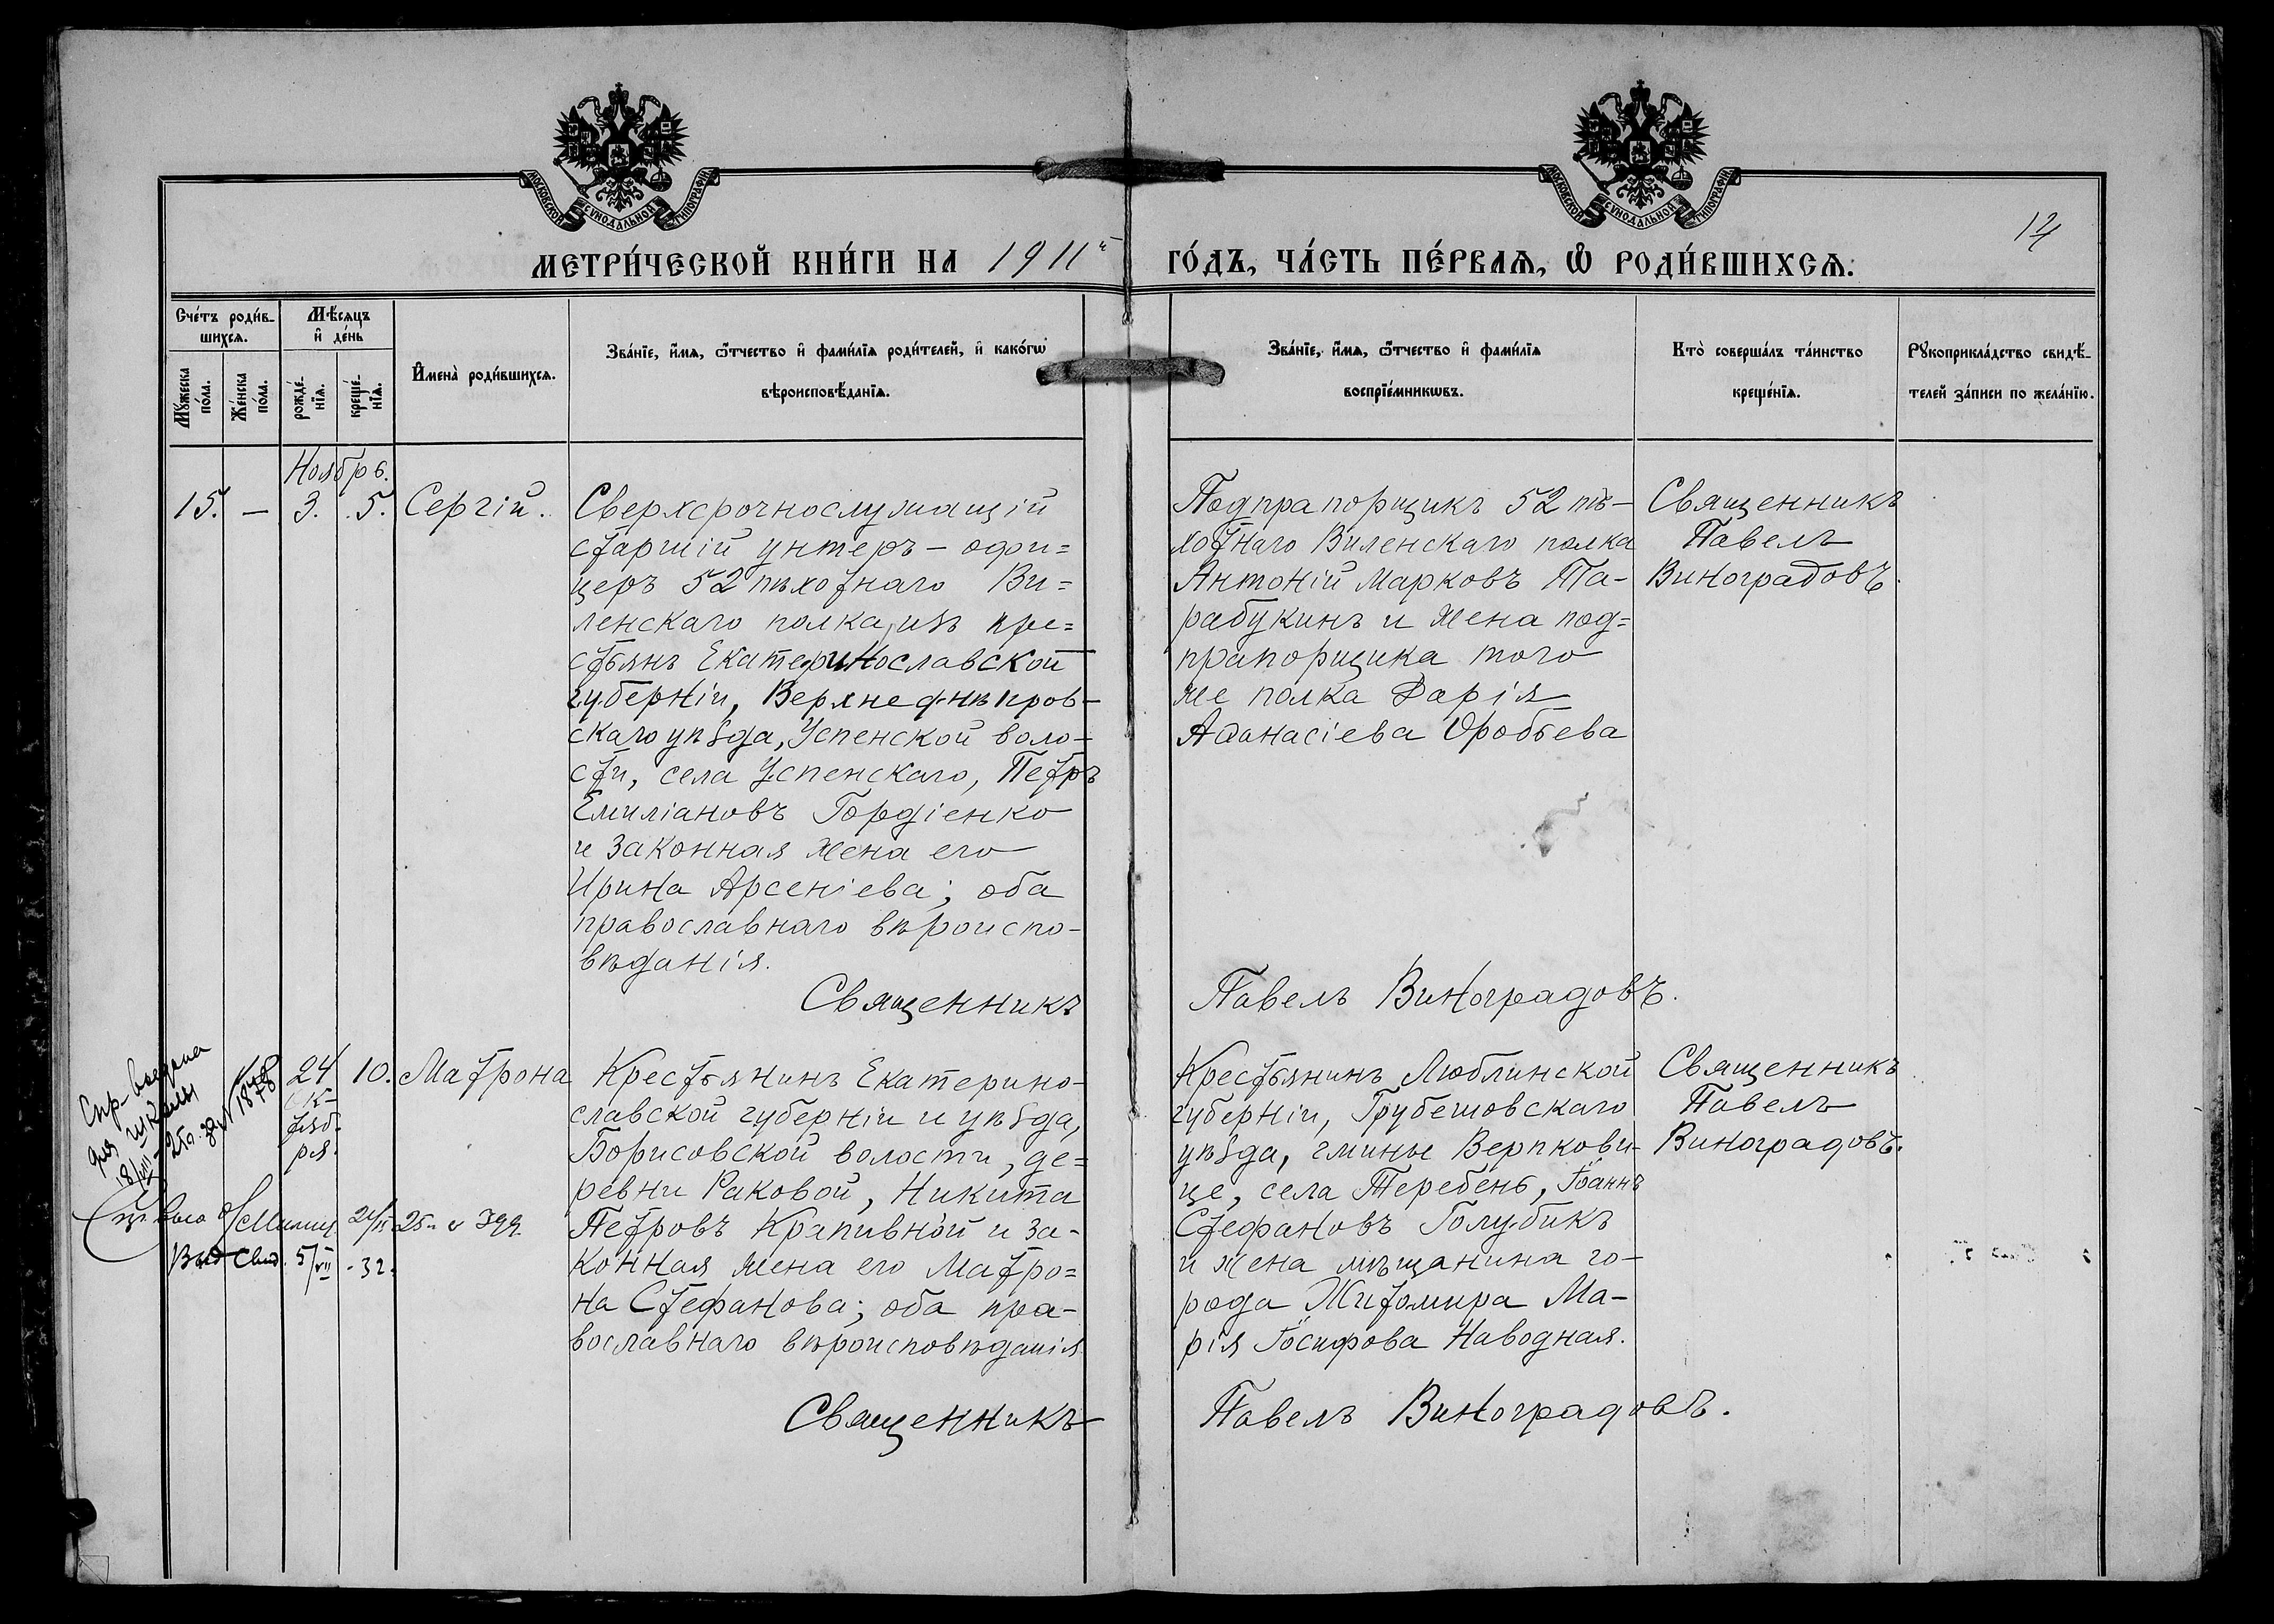 МОСКОВСКОЙ СУНОДАЛЬНОЙ ТИПОГРАФІИ
МОСКОВСКОЙ СУНОДАЛЬНОЙ ТИПОГРАФІИ
14
МЕТРИ́ЧЕСКОЙ КНИ́ГИ НА 1911й ГО́ДЪ, ЧА́СТЬ ПЕ́РВАѦ, Ѡ РОДИ́ВШИХСѦ.
Сче́тъ роди́в-
шихсѧ.
Мѣ́сѧцъ
и҆ де́нь
Мꙋжеска
по́ла.
Же́нска
по́ла.
рожде́-
нїѧ.
креще́-
нїѧ.
И҆мена̀ роди́вшихсѧ.
Зва́нїе, и҆́мѧ, ѻ҆́тчество и҆ фами́лїѧ роди́телей, и҆ како́гѡ
вѣроисповѣ́данїѧ.
Зва́нїе, и҆́мѧ, ѻ҆́тчество и҆ фами́лїѧ
воспрїе́мникѡвъ.
Кто̀ соверша́лъ та́инство
креще́нїѧ.
Рꙋкоприкла́дство свидѣ́-
телей за́писи по жела́нїю.
Ноябрь.
15. — 3. 5. Сергій.
Сверхсрочнослужащій
старшій унтеръ-офи=
церъ 52 пѣхотнаго Ви=
ленскаго полка, изъ кре=
стьянъ Екатеринославской
губерніи, Верхнеднѣпров-
скаго уѣзда, Успенской воло-
сти, села Успенскаго, Петръ
Емиліановъ Гордіенко
и законная жена его
Ирина Арсеніева; оба
православнаго вѣроиспо-
вѣданія.
Подпрапорщикъ 52 пѣ-
хотнаго Виленскаго полка
Антоній Марковъ Та-
рабукинъ и жена под=
прапорщика того
же полка Дарія
Аѳанасіева Оробьева
Священникъ
Павелъ
Виноградовъ.
Священникъ Павелъ Виноградовъ.
Спр. выдана
для школы
18/VIII 25 г. за № 1878
24
Ок-
тяб-
ря.
10. Матрона
Крестьянинъ Екатерино-
славской губерніи и уѣзда,
Борисовской волости, де=
ревни Раковой, Никита
Петровъ Крапивной и за-
конная жена его Матро=
на Стефанова; оба пра-
вославнаго вѣроисповѣданія.
Крестьянинъ Люблинской
губерніи, Грубешовскаго
уѣзда, гмины Верпкови-
це, села Теребень, Іоаннъ
Стефановъ Голубикъ
и жена мѣщанина го-
рода Житомира Ма-
рія Іосифова Наводная.
Священникъ
Павелъ
Виноградовъ.
25 г. № 399
Выд свид. 5/VII - 32.
Священникъ Павелъ Виноградовъ.